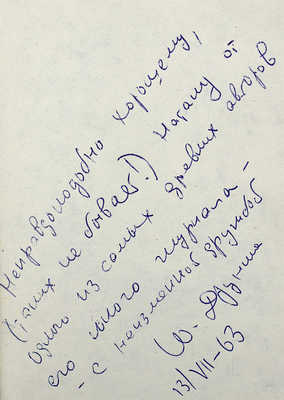 Неправдоподобно хорошему,
(таких не бывает!) Натану от
одного из самых древних авторов
его юного журнала –
– с неизменной дружбой
Ю. Друнина
13/VII–63